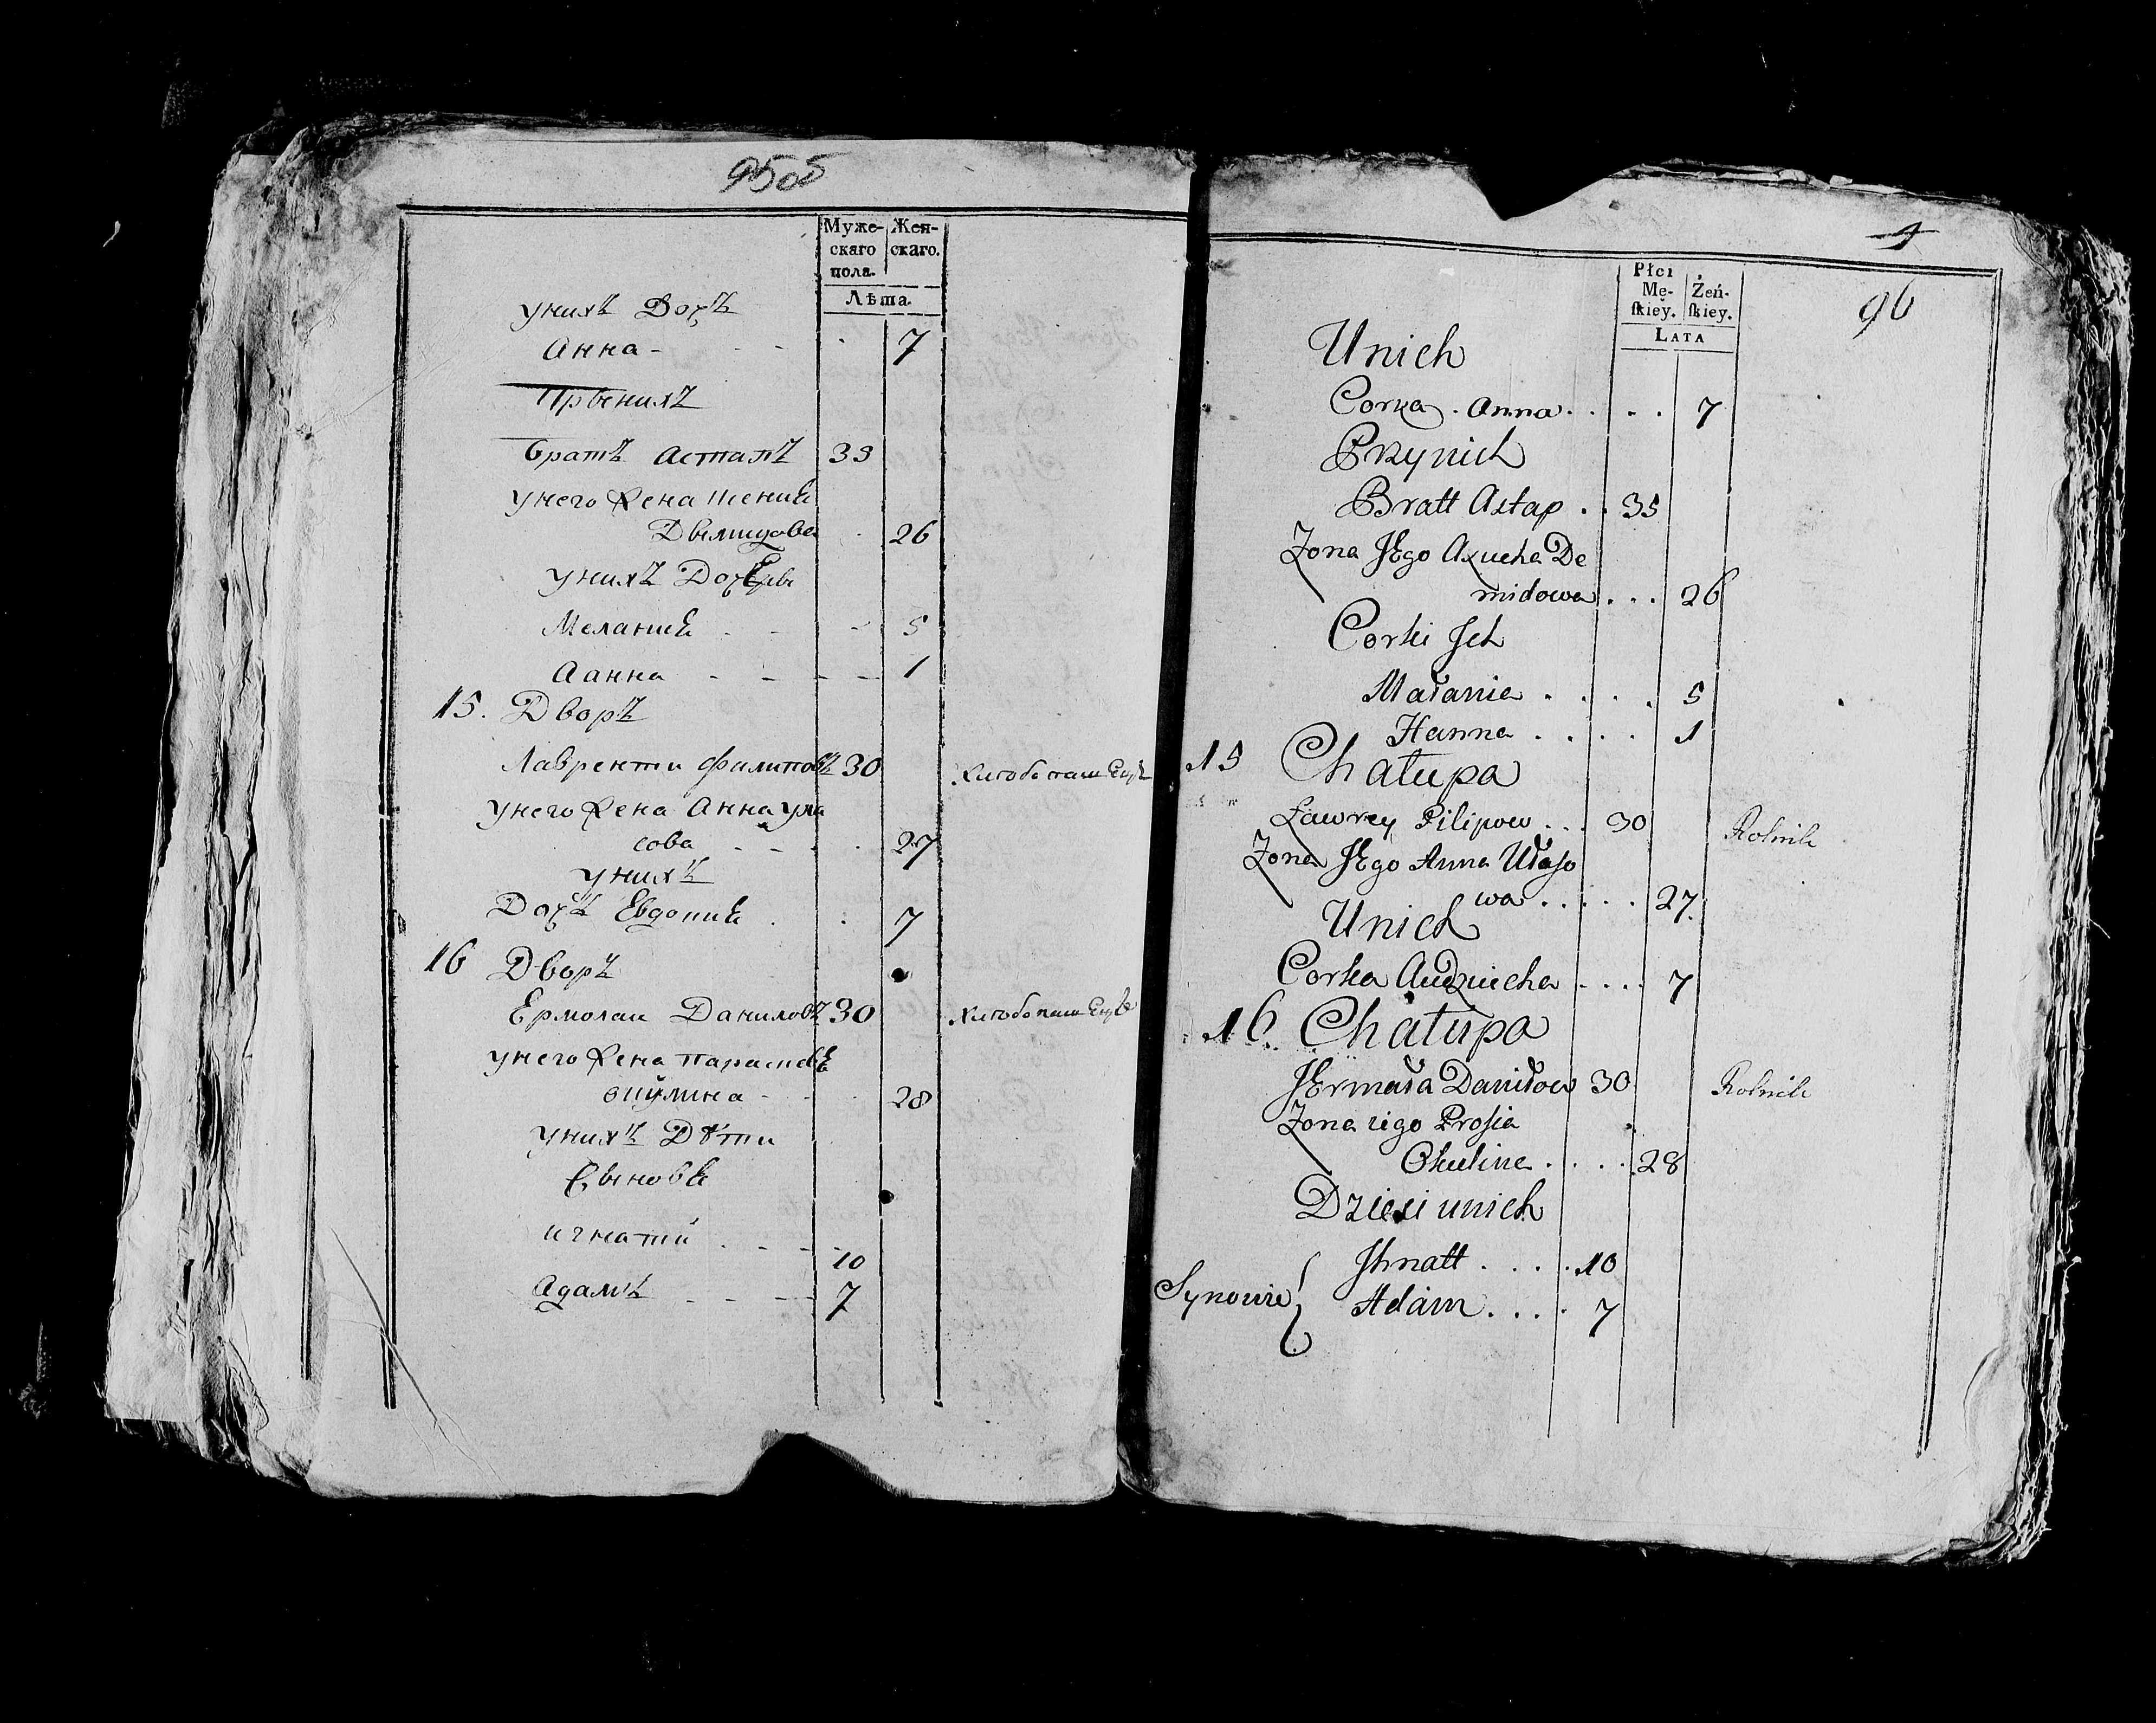 Муже-
скаго
пола.
Жен-
скаго.
Лѣта.
унихъ Дочъ
Анна - - - . 7
Прѣнихъ
братъ Астапъ 33
унего Жена
26
унихъ
5
Аанна - - - - - 1
15. Дворъ
Лаврентии Филиповъ 30
унего Жена Анна ула
сова - - . . 27
унихъ
Дочъ . . 7
16 Дворъ
Ермолаи Даниловъ 30
унего Жена
окулина - - . 28
унихъ Дѣти
Сыновѣ
игнатии . - - - 10
Адамъ - - - - 7
96
Płci
Mę-
ſkiey.
Żeń-
ſkiey.
LATA
Unich
Corka . Anna . . . . 7
Przynich
Bratt Astap . . 35
Zona JEgo Axucha De
midowa . . . 26
Corki Jch
Małania . . . . . 5
Hanna . . . . . 1
15 Chałupa
Ławrey Pilipow . . . 30 Rolnik
Zona JEgo Anna Ułaso
wa . . . . . 27.
Unich
Corka Audziucha . . . . 7
16. Chałupa
JErmała Daniłow 30 Rolnik
Zona iego Prosia
Okulina . . . . . 28
Dzieci unich
Jhnatt . . . . . 10
Synowie { Adam . . . . 7